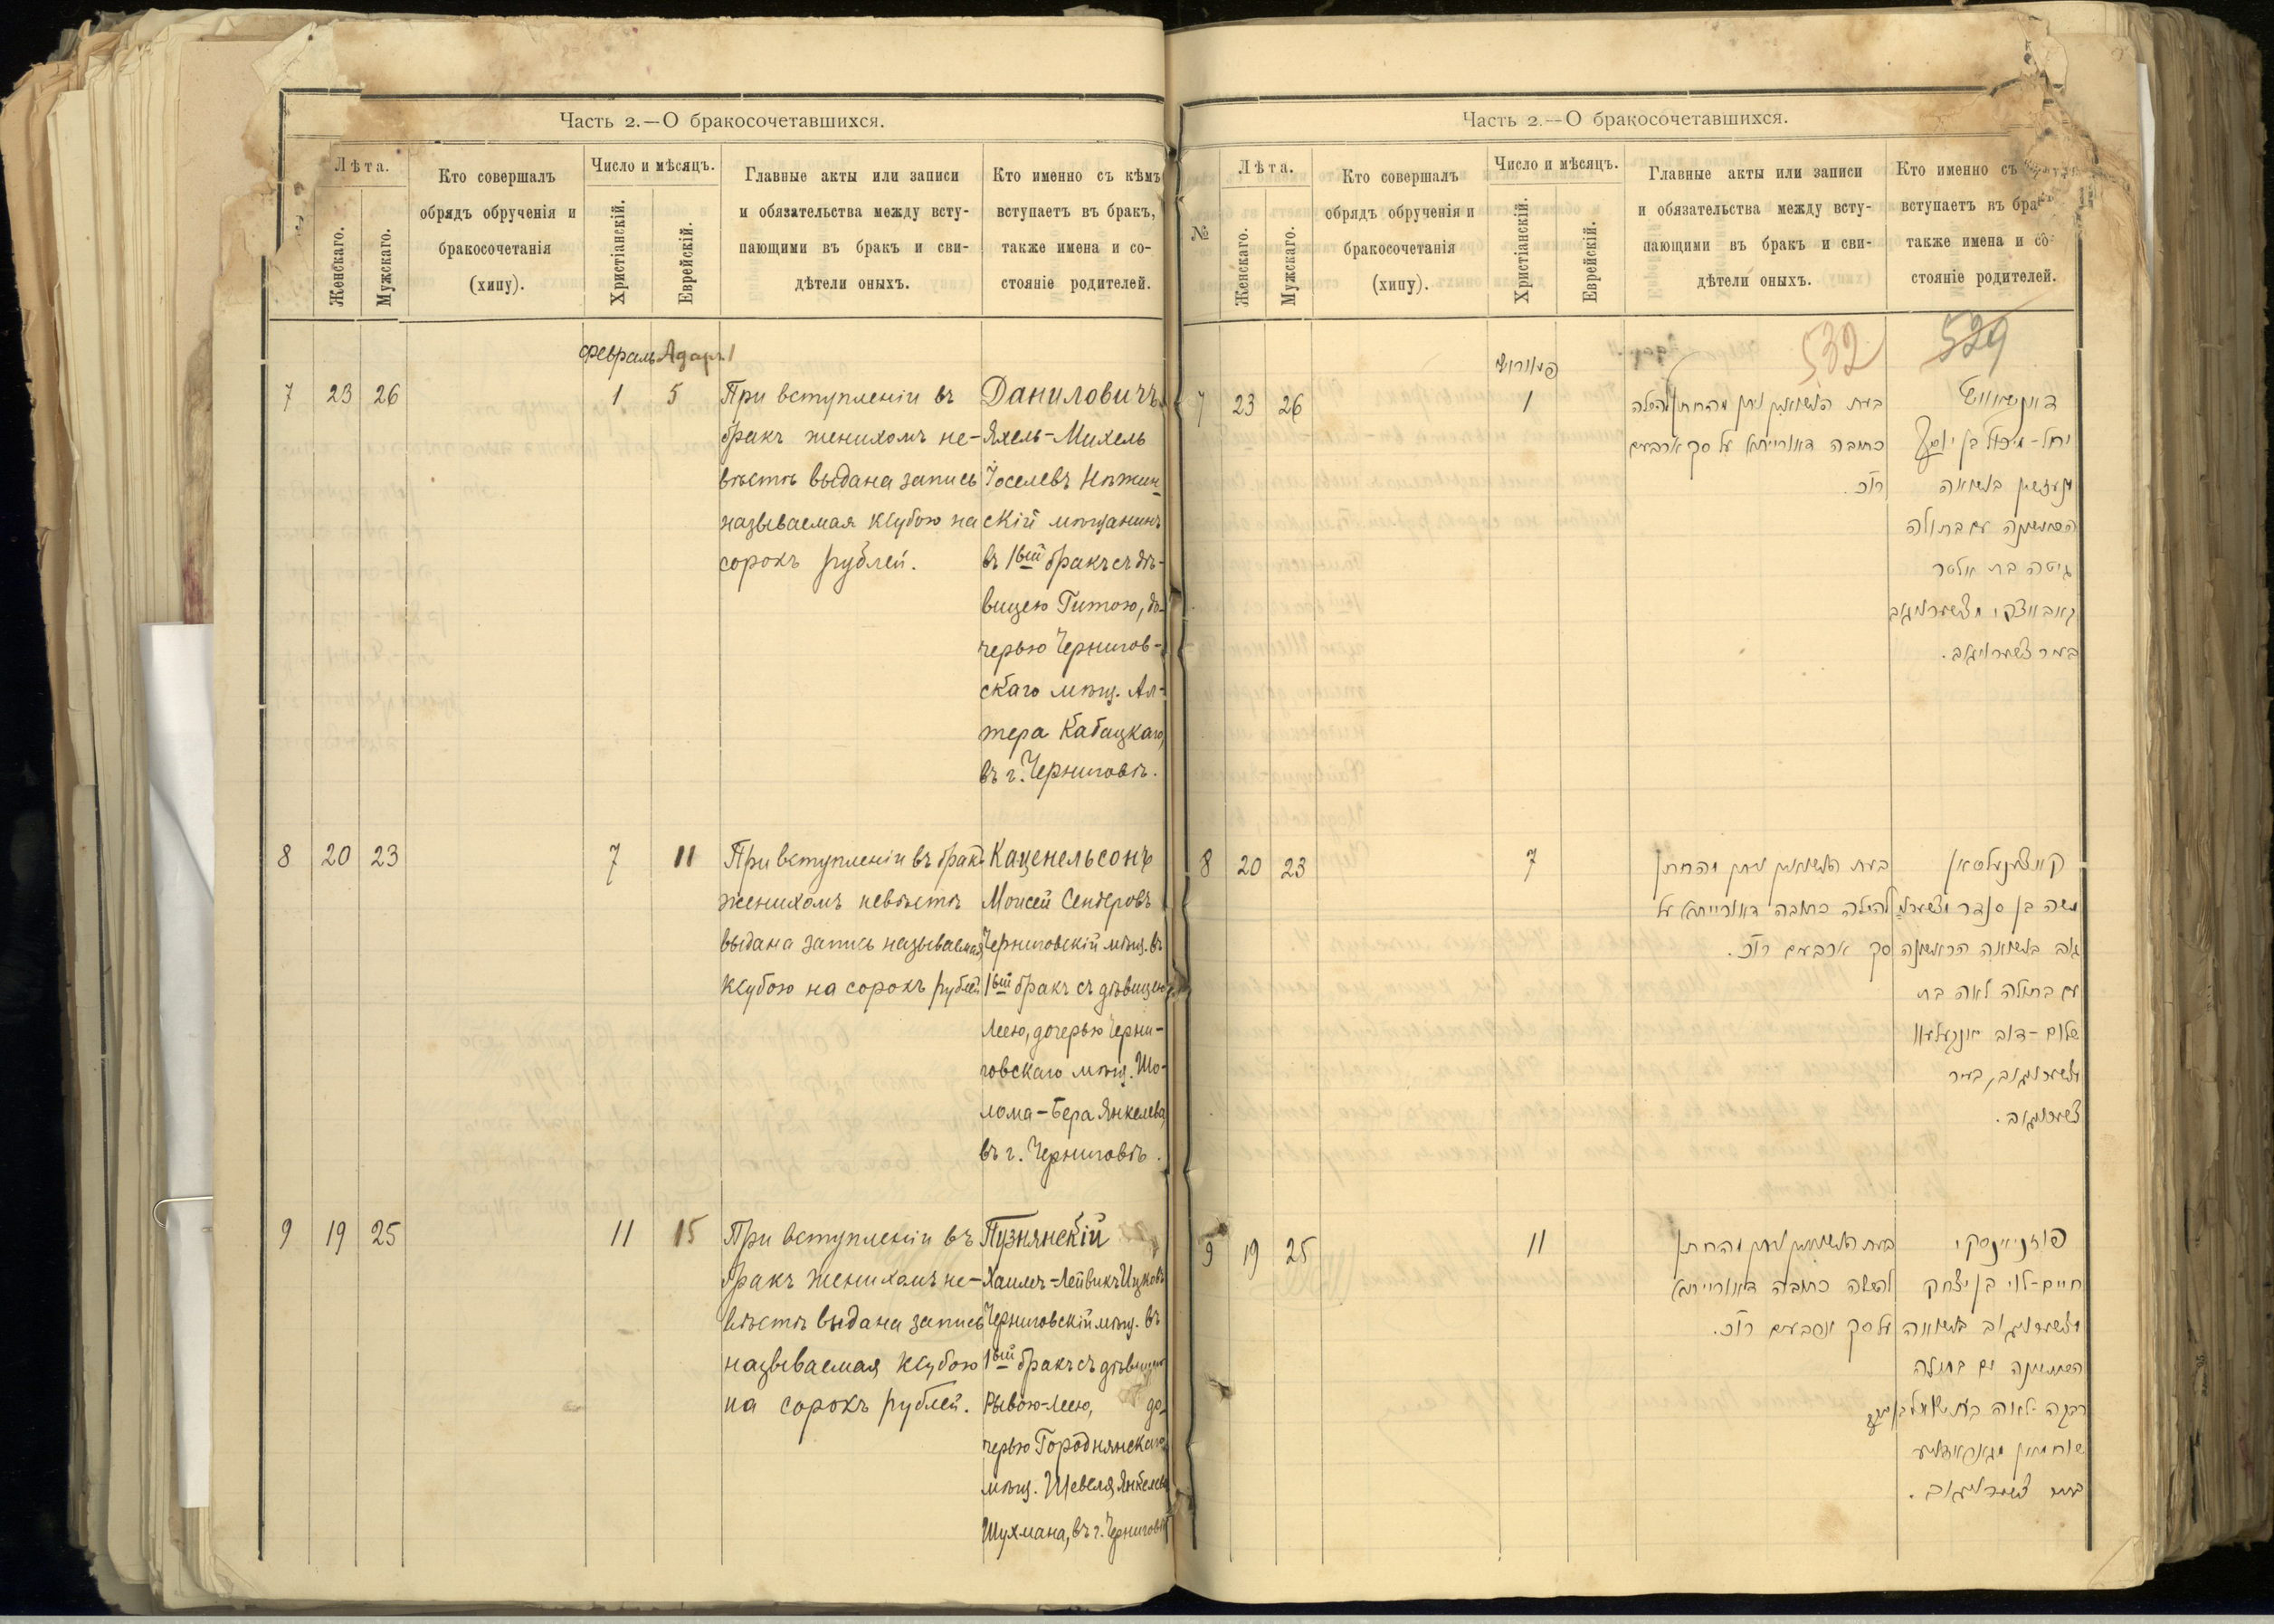 Часть 2.—О бракосочетавшихся.
Лѣта.
Женскаго.
Мужскаго.
Кто совершалъ
обрядъ обрученія и
бракосочетанія
(хипу).
Число и мѣсяцъ.
Христіанскій.
Еврейскій.
Главные акты или записи
и обязательства между всту-
пающими въ бракъ и сви-
дѣтели оныхъ.
Кто именно съ кѣмъ
вступаетъ въ бракъ,
также имена и со-
стояніе родителей.
Февраль Адаръ 1
7 23 26 1 5
При вступленіи въ
бракъ женихомъ не-
вѣстѣ выдана запись
называемая Ксубою на
сорокъ рублей.
Даниловичъ
Яхель-Михель
Іоселевъ Нѣжин-
скій мѣщанинъ
въ 1ый бракъ съ дѣ-
вицею Гитою, до-
черью Чернигов-
скаго мѣщ. Ал-
тера Кабацкаго,
въ г. Черниговѣ.
8 20 23 7 11
При вступленіи въ бракъ
женихомъ невѣстѣ
выдана запись называемая
Ксубою на сорокъ рублей
Каценельсонъ
Моисей Сендеровъ
Черниговскій мѣщ. въ
1ый бракъ съ дѣвицею
Леею, дочерью Черни-
говскаго мѣщ. Шо-
лома-Бера Янкелева,
въ г. Черниговѣ.
9 19 25 11 15
При вступленіи въ
бракъ женихомъ не-
вѣстѣ выдана запись
называемая Ксубою
на сорокъ рублей.
Пузнянскій
Хаимъ-Лейвикъ Ицковъ
Черниговскій мѣщ. въ
1ый бракъ съ дѣвицею
Рывою-Леею, до-
черью Городнянскаго
мѣщ. Шевеля Янкелева
Шухмана, въ г. Черниговѣ
Часть 2.—О бракосочетавшихся.
№
Лѣта.
Женскаго.
Мужскаго.
Кто совершалъ
обрядъ обрученія и
бракосочетанія
(хипу).
Число и мѣсяцъ.
Христіанскій.
Еврейскій.
Главные акты или записи
и обязательства между всту-
пающими въ бракъ и сви-
дѣтели оныхъ.
Кто именно съ
вступаетъ въ бра
также имена и со-
стояніе родителей.
532 529
7 23 26 1
בעת הנשואין ניתן מהחתן להכלה
כתובה דאורייתא על סך ארבעים
רו״כ.
יחל-מיכל בן יוסף
עם בתולה
גיטה בת אלטר
8 20 23 7
בעת הנשואין ניתן מהחתן
להכלה כתובה דאורייתא על
סך ארבעים רו״כ.
קאצענעלסאן
משה בן סנדר
בנשואה הראשונה
עם בתולה לאה בת
שלום-דוב
9 19 25 11
בעת הנשואין ניתן מהחתן
להכלה כתובה דאורייתא
על סך ארבעים רו״כ.
פוזניאנסקי
חיים-לוי בן יצחק
רבקה-לאה